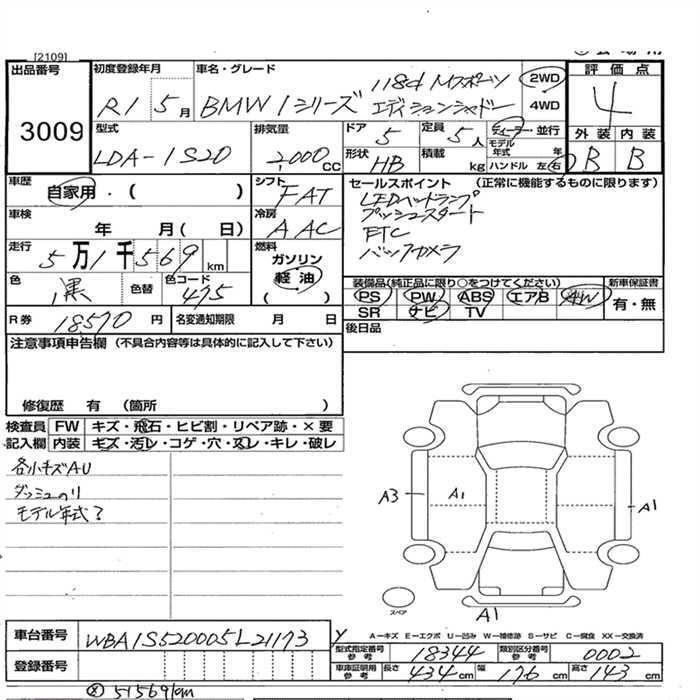 [2109]
出品番号
3009
初度登録年月
R1 5月
車名・グレード
BMW 1シリーズ
118d Mスポーツ
エディションシャドー
2WD
4WD
評価点
4
外装 内装
B B
型式
LDA-1S20
排気量
2,000cc
ドア
5
定員
5人
ディーラー・並行
モデル年式 年
形状
HB
積載
kg
ハンドル 左・右
車歴
自家用・( )
シフト
FAT
セールスポイント (正常に機能するものに限ります)
LEDヘッドランプ
プッシュスタート
ETC
バックカメラ
車検
年 月( 日)
冷房
AAC
走行
5万1千569km
燃料
ガソリン
軽油
( )
色
黒
色替
色コード
475
装備品(純正品に限り○をつけてください)
PS PW ABS エアB AW
SR ナビ TV
新車保証書
有・無
R券
18570円
名変通知期限 月 日
後日品
注意事項申告欄 (不具合内容等は具体的に記入して下さい)
修復歴 有 (箇所 )
検査員記入欄
FW キズ・飛石・ヒビ割・リペア跡・×要
内装 キズ・汚レ・コゲ・穴・スレ・キレ・破レ
各小キズAU
ダッシュのリ
モデル年式?
A3
A1
A1
スペア
A1
車台番号
WBA1S520005L21173
登録番号
A-キズ E-エクボ U-凹み W-補修跡 S-サビ C-腐食 XX-交換済
型式指定番号 参考
18344
類別区分番号 参考
0002
車庫証明用 参考
長さ 434cm
幅 176cm
高さ 143cm
51569km